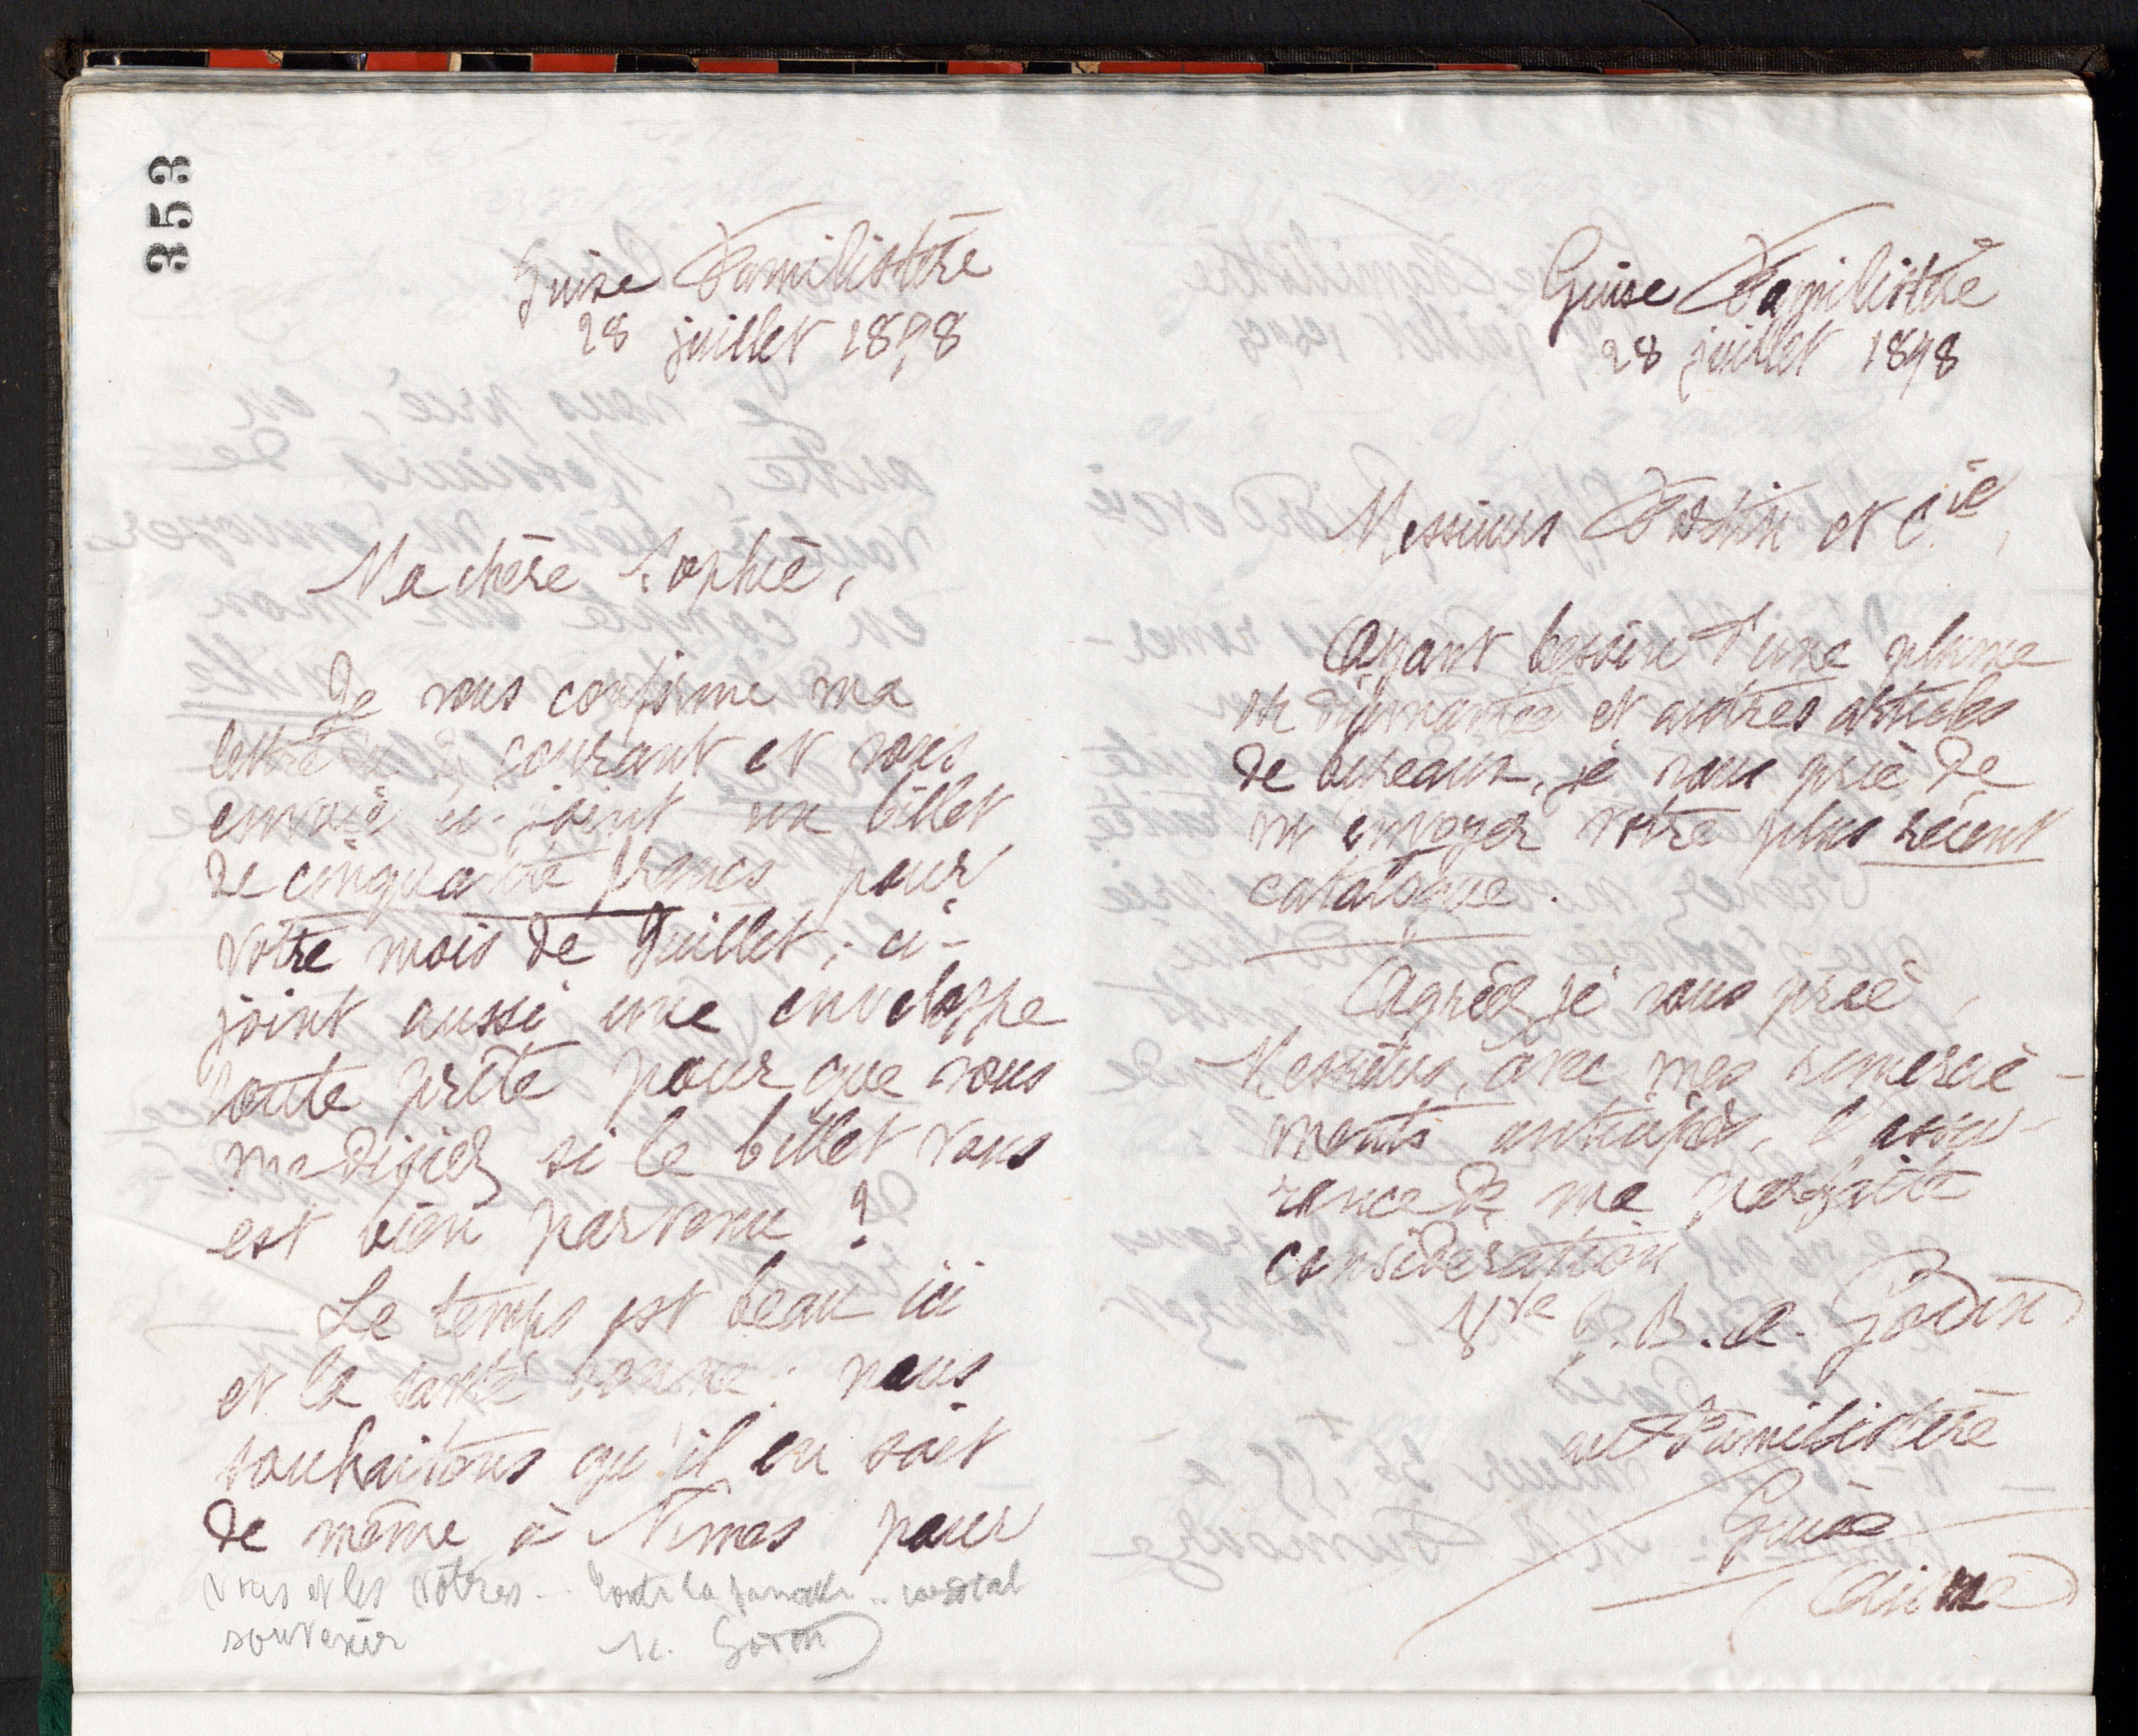 353
Guise Familistère
28 juillet 1898
Ma chère Sophie,
Je vous confirme ma
lettre du courant et vous
envoie ci-joint un billet
de cinquante francs pour
votre mois de Juillet ; ci-
joint aussi une enveloppe
toute prête pour que vous
me disiez si le billet vous
est bien parvenu ?
Le temps est beau ici
et la santé bonne ; nous
souhaitons qu'il en soit
de même à Nîmes pour
vous et les vôtres. toute la famille.. cordial
souvenir M. Godin
Guise Familistère
28 juillet 1898
Messieurs Fortin et Cie,
Ayant besoin d'une plume
et autres articles
de bureaux, je vous prie de
m'envoyer votre plus récent
catalogue.
Agréez je vous prie,
Messieurs, avec mes remercie-
ments anticipés, l'assu-
rance de ma parfaite
considération
Vve J. B. A. Godin
au Familistère
Guise
Aisne